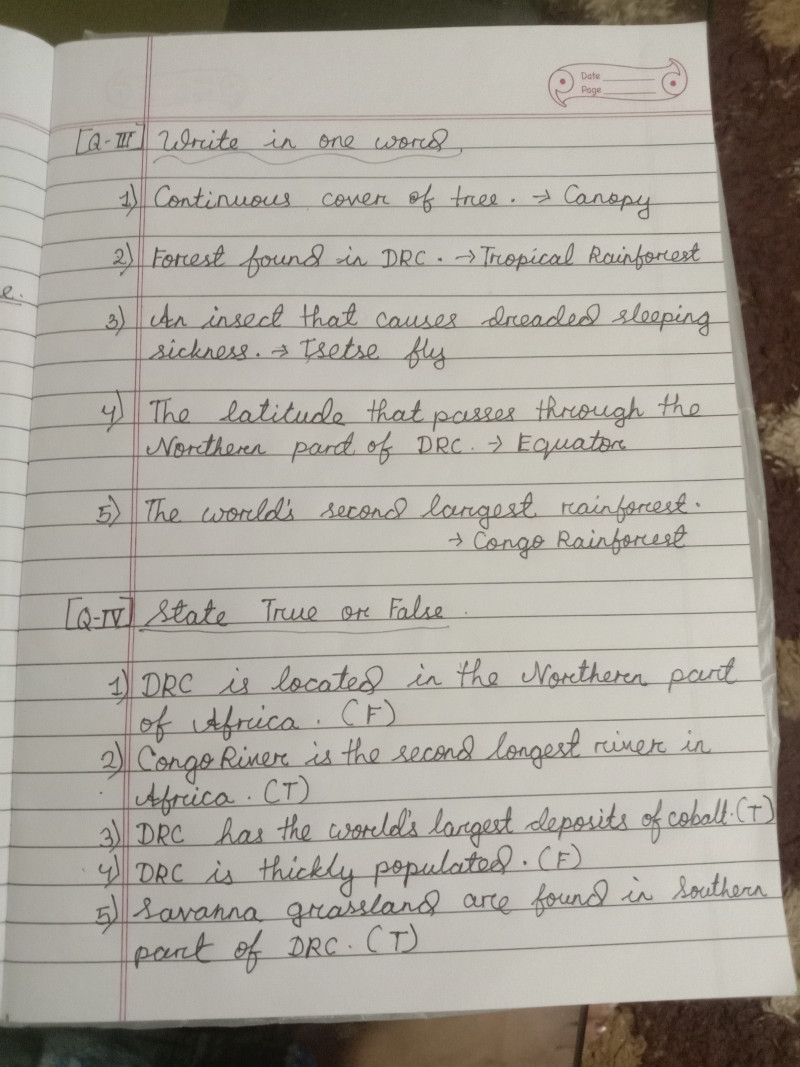 Date
Page
[Q-III] Write in one word.
1) Continuous cover of tree. → Canopy
2) Forest found in DRC. → Tropical Rainforest
e.
3) An insect that causes dreaded sleeping
sickness. → Tsetse fly
4) The latitude that passes through the
Northern part of DRC. → Equator
5) The world's second largest rainforest.
→ Congo Rainforest
[Q-IV] State True or False.
1) DRC is located in the Northern part
of Africa. (F)
2) Congo River is the second longest river in
Africa. (T)
3) DRC has the world's largest deposits of cobalt. (T)
4) DRC is thickly populated. (F)
5) Savanna grassland are found in Southern
part of DRC. (T)